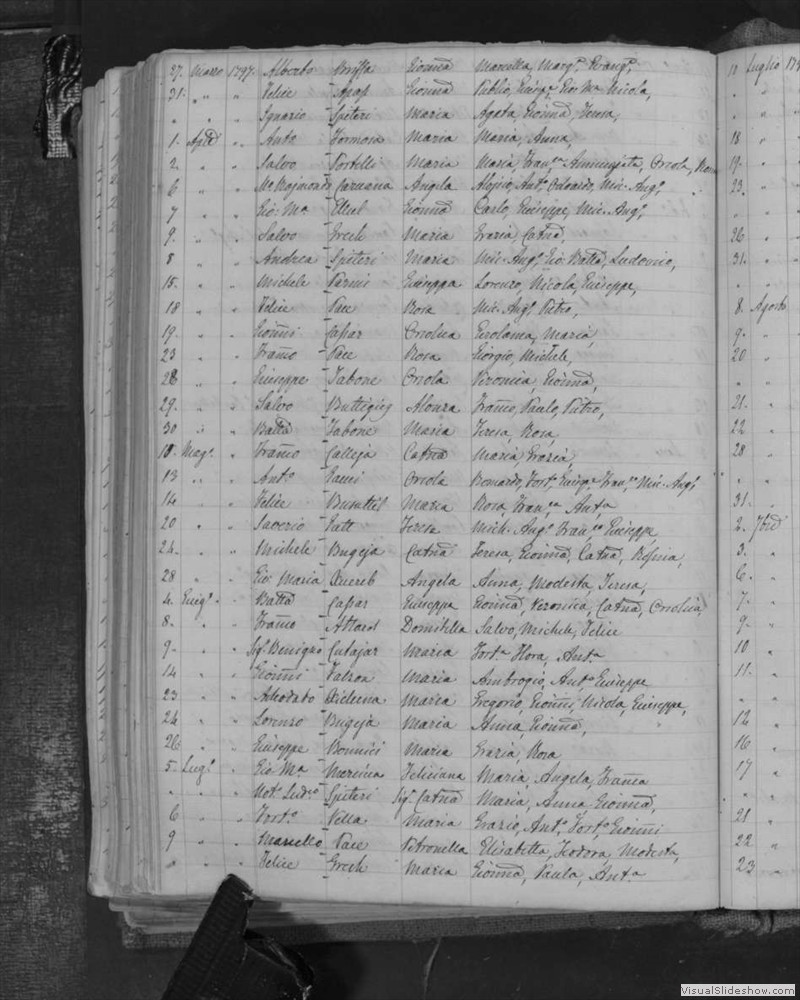 27. Marzo 1797. Alberto Briffa Gionna Marcella, Marg.ª, Evang.ª,
31. " " Felice Apap Gionna Publio, Giusp.e Gio: M.a Nicola,
" " " Ignazio Spiteri Maria Agata, Gionna, Teresa,
1. Aple " Anto Formosa Maria Maria, Anna,
2. " " Salvo Portelli Maria Maria, Fran.ca Annunziata, Oriola,
6 " " Raimondo Caruana Angela Aloisio, Ant.o Odoardo, Mic. Ang.o,
7 " " Gio: M.a Ellul Gionna Carlo, Giuseppe, Mic. Ang.o,
9. " " Salvo Grech Maria Grazia, Catna,
8 " " Andrea Spiteri Maria Mic. Ang.o Gio: Batta, Ludovico,
15. " " Michele Giuseppa Lorenzo, Nicola, Giuseppe,
18 " " Felice Pace Rosa Mic. Ang.o Pietro,
19. " " Gionni Caspar Oriolua Gerolama, Maria,
23 " " Franco Pace Rosa Giorgio, Michele,
28 " " Giuseppe Tabone Oriola Veronica, Gionna,
29. " " Salvo Buttigieg Alonza Franco, Paulo, Pietro,
30 " " Batta Tabone Maria Teresa, Rosa,
10. Mag.o " Franco Calleja Catna Maria, Grazia,
13 " " Ant.o Oriola Bernardo, Fort.o Giusp.e Fran.co Mic. Ang.o
14 " " Felice Busuttil Maria Rosa, Fran.ca Anta
20 " " Saverio Teresa Mich. Ang.o Fran.co Giuseppe,
24. " " Michele Bugeja Catna Teresa, Gionna, Catna, Rosina,
28 " " Gio: Maria Xuereb Angela Anna, Modesta, Teresa,
4. Giug.o " Batta Caspar Giuseppa Gionna, Veronica, Catna, Oriolua,
8. " " Franco Attard Domitilla Salvo, Michele, Felice
9 " " Sig.r Benigno Cutajar Maria Fort.a Flora, Ant.a
14 " " Gionni Falzon Maria Ambrogio, Ant.o Giuseppe
23 " " Adeodato Xicluna Maria Gregorio, Gionni, Nicola, Giuseppe,
24 " " Lorenzo Bugeja Maria Anna, Gionna, "
26 " " Giuseppe Bonnici Maria Grazia, Rosa
5. Lug.o " Gio: M.a Mercieca Feliciana Maria, Angela, Franca
" " " Not.o Lud.co Spiteri Sig.a Catna Maria, Anna Gionna,
6 " " Fort.o Vella Maria Grazio, Ant.o Fort.o Gionni
9 " " Marcello Pace Petronella Elisabetta, Teodora, Modesta,
" " " Felice Grech Maria Gionna, Paula, Ant.a
18 "
19. "
23. "
26 "
31. "
8. Agosto
9. "
20 "
21. "
22 "
28 "
31. "
2. 7bre
3. "
6. "
7. "
9. "
10 "
11. "
12 "
16 "
17 "
21 "
22 "
23 "
VisualSlideshow.com